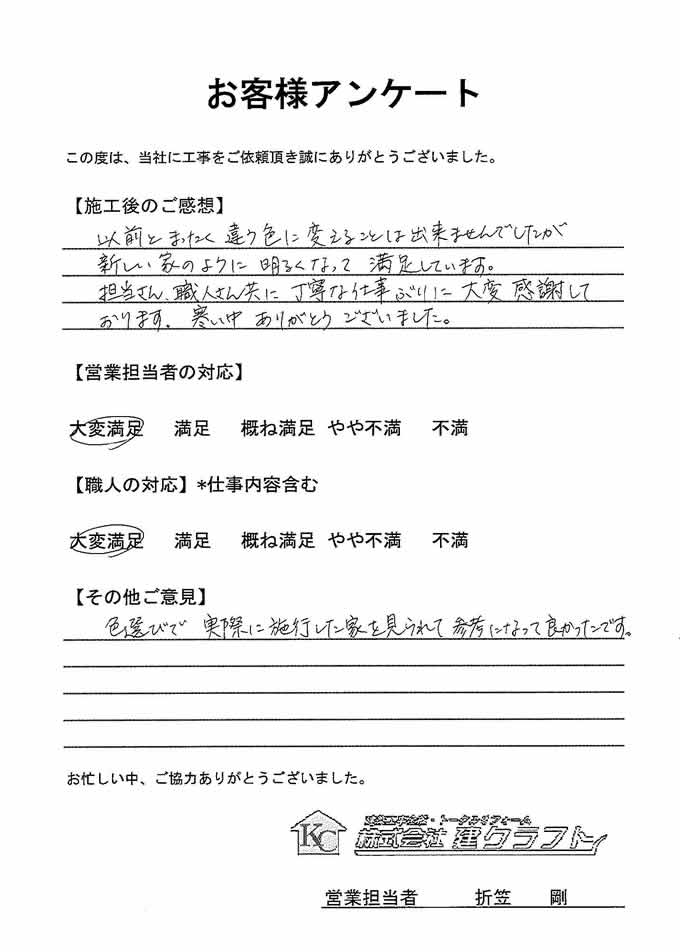 お客様アンケート
この度は、当社に工事をご依頼頂き誠にありがとうございました。
【施工後のご感想】
以前とまったく違う色に変えることは出来ませんでしたが
新しい家のように明るくなって満足しています。
担当さん、職人さん共に丁寧な仕事ぶりに大変感謝して
おります。寒い中ありがとうございました。
【営業担当者の対応】
大変満足 満足 概ね満足 やや不満 不満
【職人の対応】*仕事内容含む
大変満足 満足 概ね満足 やや不満 不満
【その他ご意見】
色選びで実際に施行した家を見られて参考になって良かったです。
お忙しい中、ご協力ありがとうございました。
KC
・トータルリフォーム
株式会社 建クラフト
営業担当者 折笠 剛